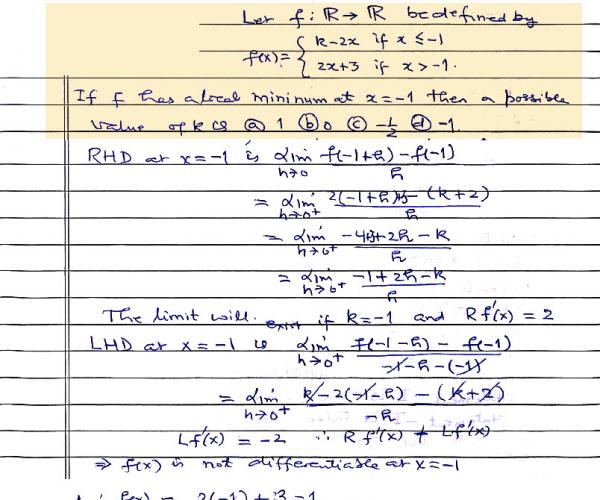 Let f : ℝ → ℝ be defined by
f(x) = { k-2x if x ≤ -1
2x+3 if x > -1.
If f has a local mininum at x = -1 then a possible
value of k is (a) 1 (b) 0 (c) -1/2 (d) -1.
RHD at x = -1 is lim h→0 (f(-1+h) - f(-1))/h
= lim h→0+ (2(-1+h)+3 - (k+2))/h
= lim h→0+ (-4+3+2h-k)/h
= lim h→0+ (-1+2h-k)/h
The limit will exist if k = -1 and Rf'(x) = 2
LHD at x = -1 is lim h→0+ (f(-1-h) - f(-1))/(-1-h-(-1))
= lim h→0+ (k-2(-1-h) - (k+2))/-h
Lf'(x) = -2 ∴ Rf'(x) ≠ Lf'(x)
⇒ f(x) is not differentiable at x = -1